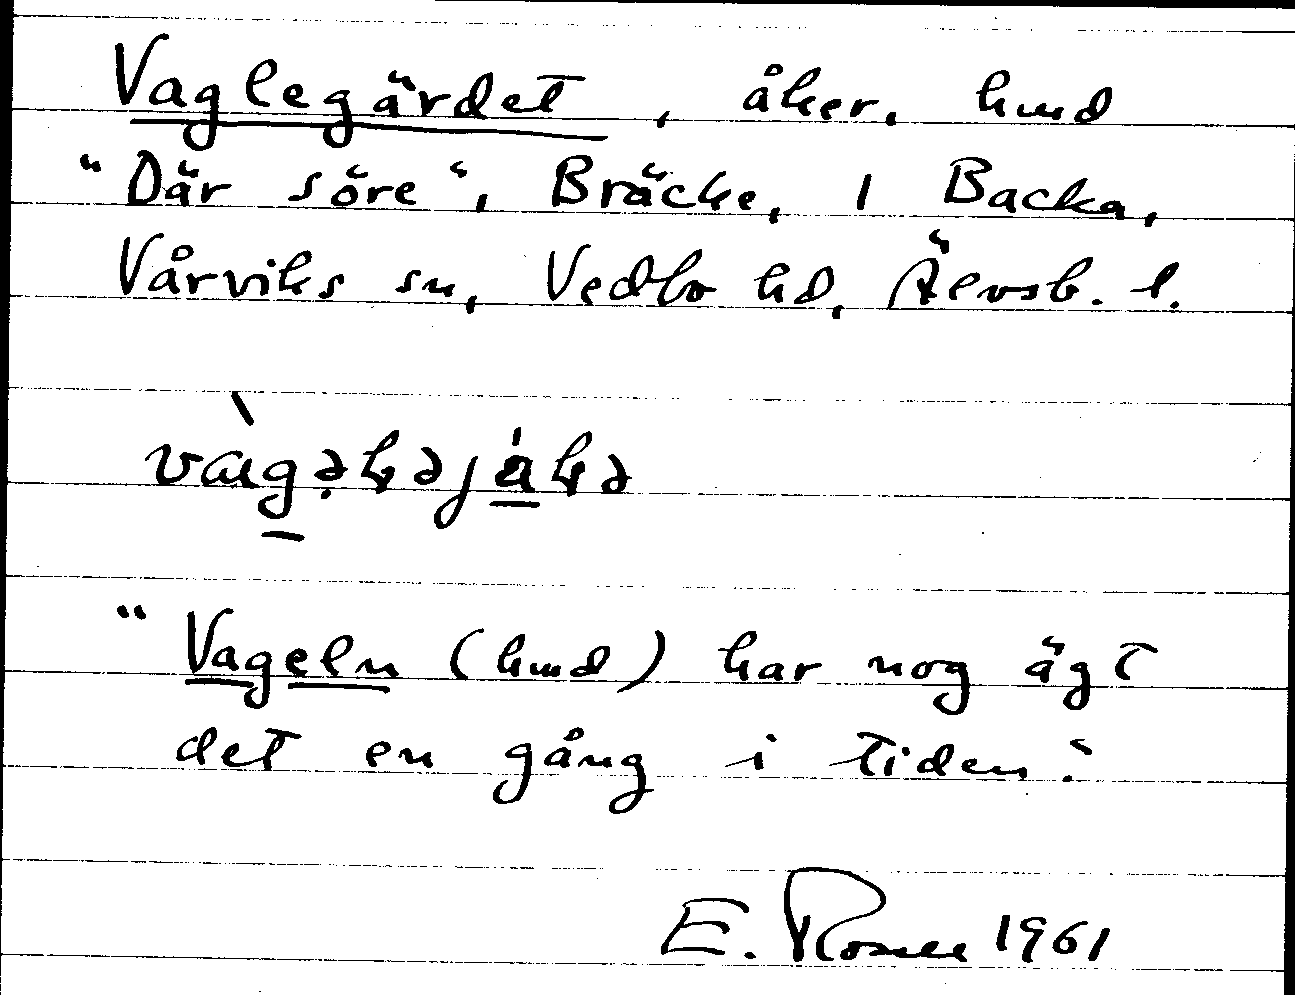 Vaglegärdet, åker, hmd
"Där söre", Bräcke, 1 Backa,
Vårviks sn, Vedbo hd, Älvsb. l.
"Vageln (hmd) har nog ägt
det en gång i tiden."
E. Rosell 1961